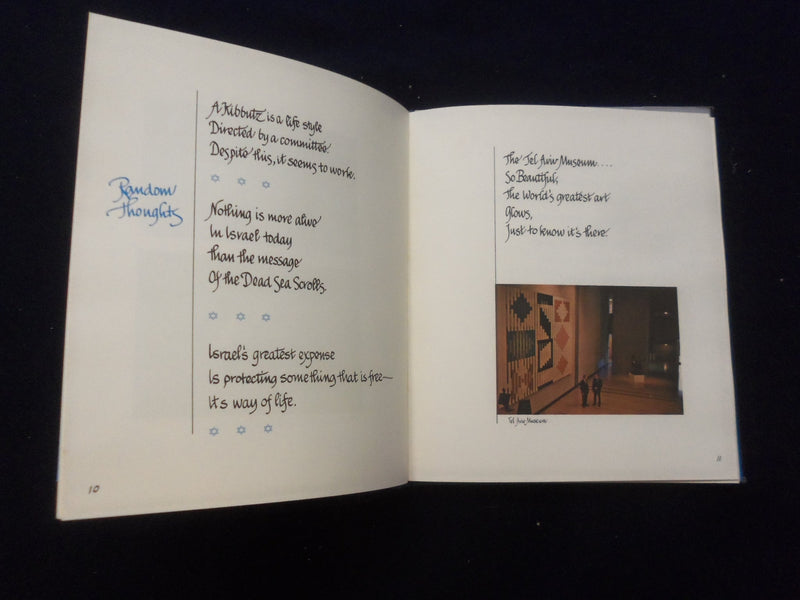 Random
Thoughts
A Kibbutz is a life style
Directed by a committee.
Despite this, it seems to work.
Nothing is more alive
In Israel today
than the message
Of the Dead Sea Scrolls.
Israel's greatest expense
Is protecting something that is free—
It's way of life.
10
The Tel Aviv Museum....
So Beautiful;
The World's greatest art
Glows,
Just to know it's there.
Tel Aviv Museum
11